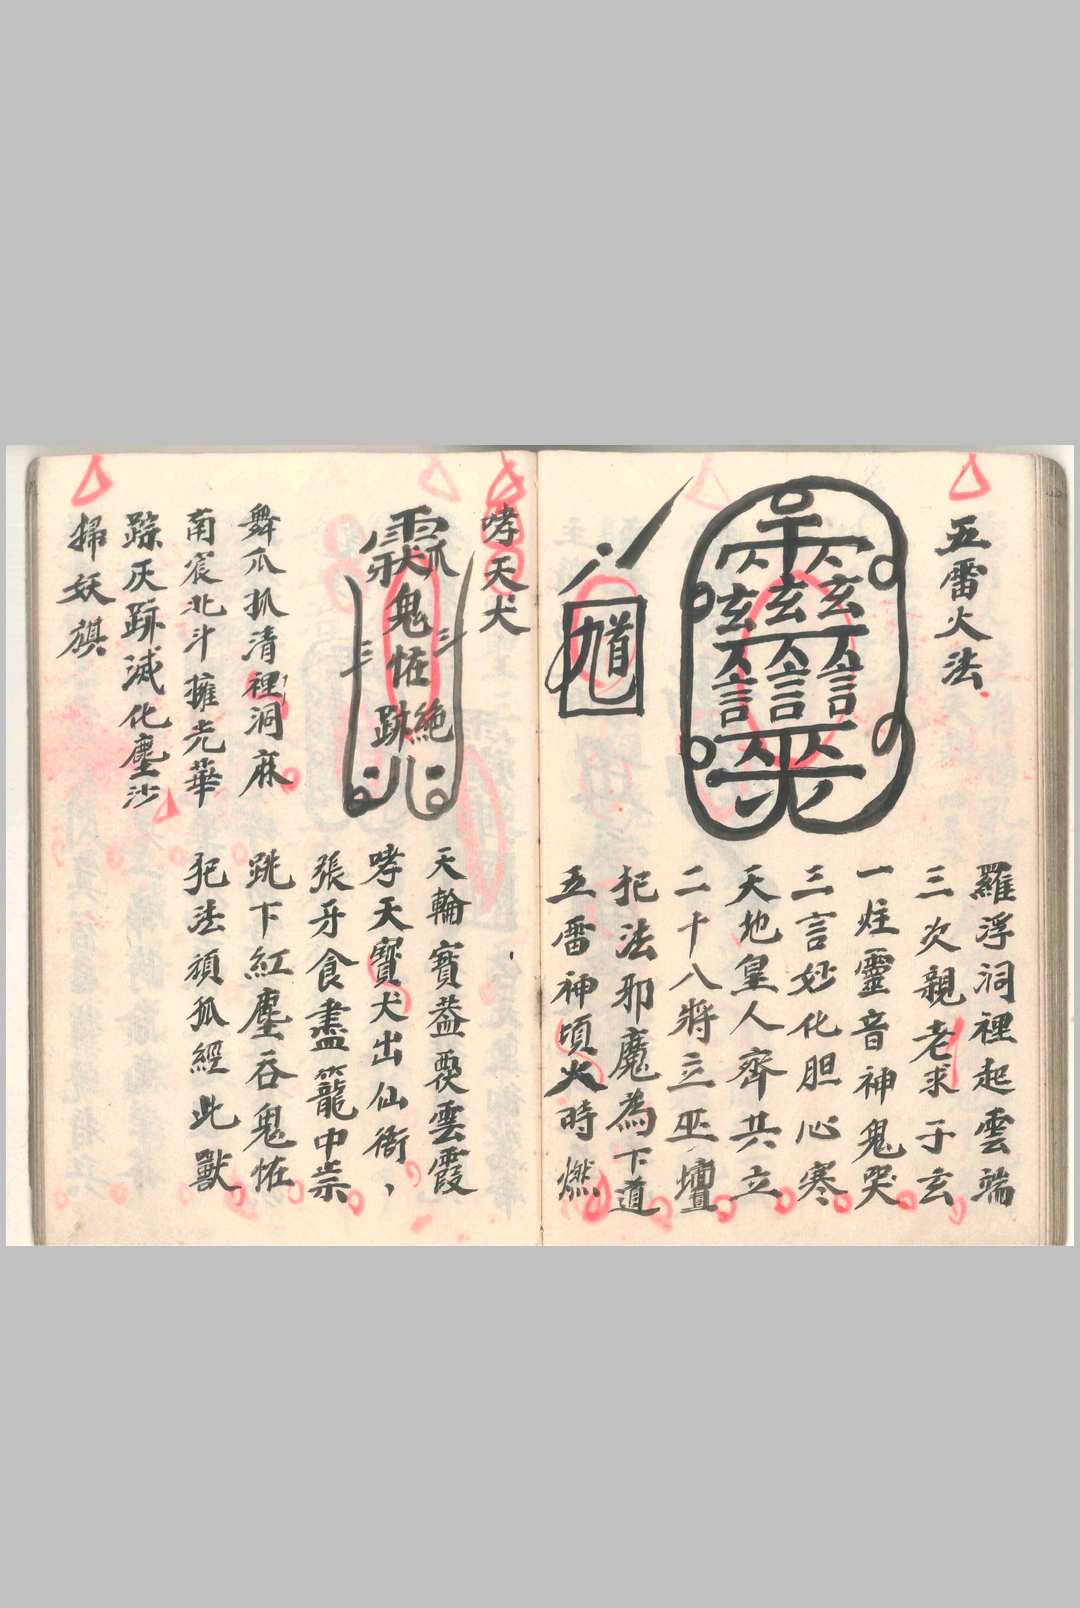 五雷火法
羅浮洞裡起雲端
三次親老求于玄
一炷靈音神鬼哭
三言妙化胆心寒
天地皇人齊共立
二十八將立巫壇
犯法邪魔為下道
五雷神頃火時燃
哮天犬
鬼恠
絕跡
天輪寶蓋覆雲霞
哮天寶犬出仙衙，
張牙食盡籠中祟
跳下紅塵吞鬼恠
犯法頑狐經此獸
舞爪抓清裡洞麻
南宸北斗擁光華
踪灰跡滅化塵沙
掃妖旗